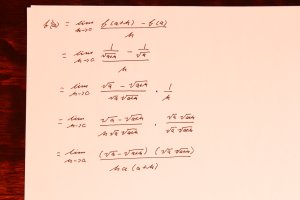 f'(a) = lim h→0 (f(a+h) - f(a)) / h
= lim h→0 (1/√(a+h) - 1/√a) / h
= lim h→0 (√a - √(a+h)) / (√a √(a+h)) · 1/h
= lim h→0 (√a - √(a+h)) / (h √a √(a+h)) · (√a √(a+h)) / (√a √(a+h))
= lim h→0 (√a - √(a+h)) (√a √(a+h)) / (h a (a+h))